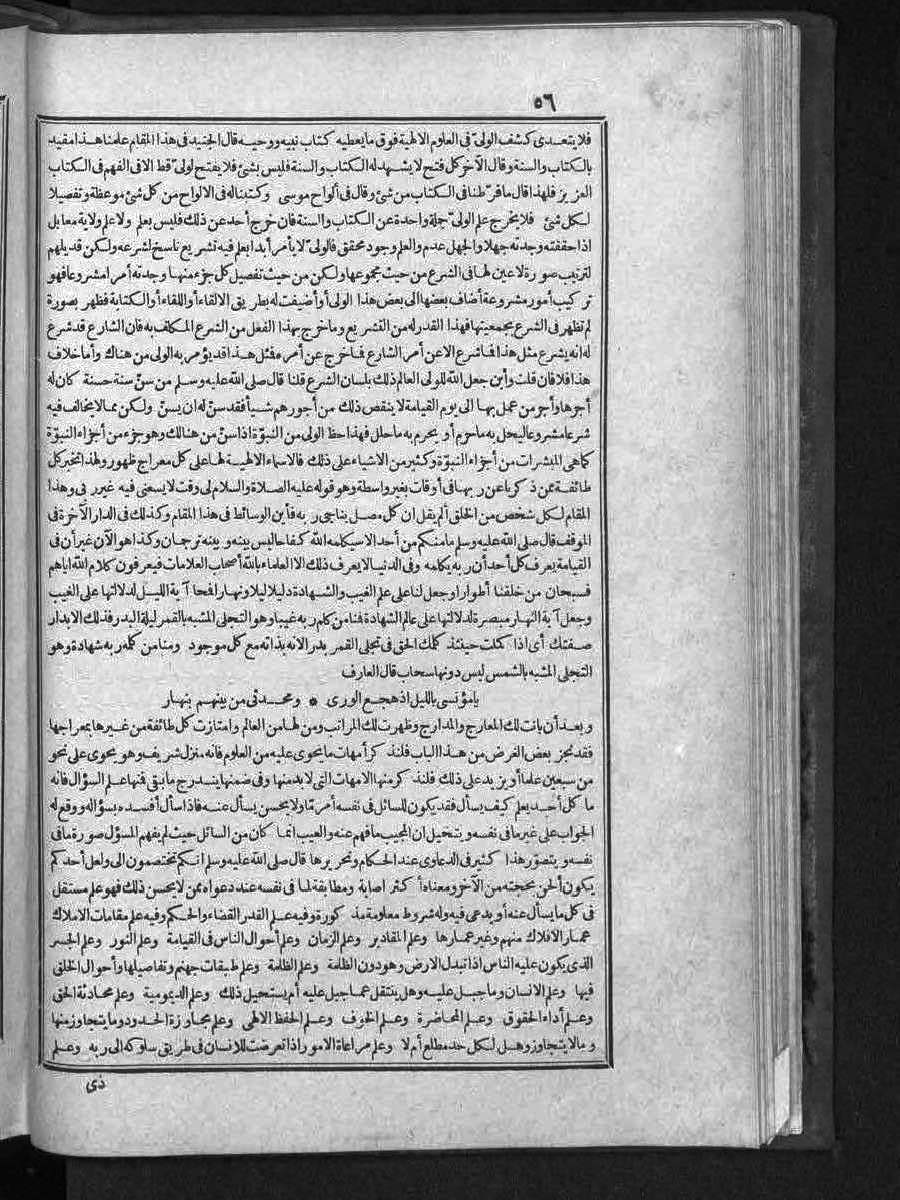 ٥٦
فلا يتعدى كشف الولى فى العلوم الالهية فوق ما يعطيه كتاب نبيه ووحيه قال الجنيد فى هذا المقام علمنا هذا مقيد
بالكتاب والسنة وقال الآخر كل فتح لا يشهد له الكتاب والسنة فليس بشئ فلا يفتح لولى قط الا فى الفهم فى الكتاب
العزيز فلهذا قال ما فرّطنا فى الكتاب من شئ وقال فى ألواح موسى وكتبناله فى الالواح من كل شئ موعظة وتفصيلا
لكل شئ فلا يخرج علم الولى جلة واحدة عن الكتاب والسنة فان خرج أحد عن ذلك فليس بعلم ولا علم ولاية معا بل
اذا حققته وجدته جهلا والجهل عدم والعلم وجود محقق فالولى لا يأمر أبدا بعلم فيه تشريع ناسخ لشرعه ولكن قد يلهم
لترتيب صورة لا عين لها فى الشرع من حيث مجموعها ولكن من حيث تفصيل كل جزء منها وجدته أمر امشروعا فهو
تركيب أمور مشروعة أضاف بعضها الى بعض هذا الولى أو أضيفت له بطريق الالقاء أو اللقاء أو الكتابة فظهر بصورة
لم تظهر فى الشرع بجمعيتها فهذا القدر له من التشريع وما خرج بهذا الفعل من الشرع المكلف به فان الشارع قد شرع
له انه يشرع مثل هذا فما شرع الا عن أمر الشارع فما خرج عن أمره فمثل هذا قد يؤمر به الولى من هناك وأما خلاف
هذا فلا فان قلت وأين جعل الله للولى العالم ذلك بلسان الشرع قلنا قال صلى الله عليه وسلم من سنّ سنة حسنة كان له
أجرها وأجر من عمل بها الى يوم القيامة لا ينقص ذلك من أجورهم شيأ فقد سنّ له ان يسنّ ولكن مما لا يخالف فيه
شرعا مشروعا ليحل به ما حرم أو يحرم به ما حلل فهذا حظ الولى من النبوّة اذا سنّ من هنالك وهو جزء من أجزاء النبوّة
كما هى المبشرات من أجزاء النبوّة وكثير من الاشياء على ذلك فالاسماء الالهية لها على كل معراج ظهور ولهذا تخبر كل
طائفة ممن ذكرنا عن ربها فى أوقات بغير واسطة وهو قوله عليه الصلاة والسلام لى وقت لا يسعنى فيه غير ربى وهذا
المقام لكل شخص من الخلق ألم يقل ان كل مصل يناجى ربه فأين الوسائط فى هذا المقام وكذلك فى الدار الآخرة فى
الموقف قال صلى الله عليه وسلم ما منكم من أحد الا سيكلمه الله كفاحا ليس بينه وبينه ترجمان وكذا هو الآن غير أن فى
القيامة يعرف كل أحد أن ربه يكلمه وفى الدنيا لا يعرف ذلك الا العلماء بالله أصحاب العلامات فيعرفون كلام الله اياهم
فسبحان من خلقنا أطوارا وجعل لنا على علم الغيب والشهادة دليلا ليلا ونهارا فمحا آية الليل لدلالتها على الغيب
وجعل آية النهار مبصرة لدلالتها على عالم الشهادة فمنا من كلم ربه غيبا وهو التجلى المشبه بالقمر ليلة البدر فذلك الابدار
صفتك أى اذا كملت حينئذ كلمك الحق فى تجلى القمر بدر الانه بذاته مع كل موجود ومنا من كلمه ربه شهادة وهو
التجلى المشبه بالشمس ليس دونها سحاب قال العارف
يا مؤنسى بالليل اذ هجع الورى * ومحدثى من بينهم بنهار
وبعد أن بانت لك المعارج والمدارج وظهرت لك المراتب ومن لها من العالم وامتازت كل طائفة من غيرها بمعراجها
فقد نجز بعض الغرض من هذا الباب فلنذكر أمهات ما يحوى عليه من العلوم فانه منزل شريف وهو يحوى على نحو
من سبعين علما أو يزيد على ذلك فلنذكر منها الامهات التى لا بد منها وفى ضمنها يندرج ما بقى فمنها علم السؤال فانه
ما كل أحد يعلم كيف يسأل فقد يكون للسائل فى نفسه أمر ما ولا يحسن يسأل عنه فاذا سأل أفسده بسؤاله ووقع له
الجواب على غير ما فى نفسه ويتخيل ان المجيب ما فهم عنه والعيب انما كان من السائل حيث لم يفهم المسؤل صورة ما فى
نفسه ويتصوّر هذا كثير فى الدعاوى عند الحكام وتحريرها قال صلى الله عليه وسلم انكم تختصمون الى ولعل أحدكم
يكون ألحن بحجته من الآخر ومعناه أكثر اصابة ومطابقة لما فى نفسه عند دعواه ممن لا يحسن ذلك فهو علم مستقل
فى كل ما يسأل عنه أو يدعى فيه وله شروط معلومة مذكورة وفيه علم القدر القضاء والحكم وفيه علم مقامات الاملاك
عمار الافلاك منهم وغير عمارها وعلم المقادير وعلم الزمان وعلم أحوال الناس فى القيامة وعلم النور وعلم الجسر
الذى يكون عليه الناس اذا تبدل الارض وهو دون الظلمة وعلم الظلمة وعلم طبقات جهنم وتفاصيلها وأحوال الخلق
فيها وعلم الانسان وما جبل عليه وهل ينتقل عما جبل عليه أم يستحيل ذلك وعلم الديمومية وعلم محادثة الحق
وعلم أداء الحقوق وعلم المحاضرة وعلم الخوف وعلم الحفظ الالهى وعلم مجاوزة الحدود وما يتجاوز منها
وما لا يتجاوز وهل لكل حد مطلع أم لا وعلم مراعاة الامور اذا تعرضت للانسان فى طريق سلوكه الى ربه وعلم
ذى